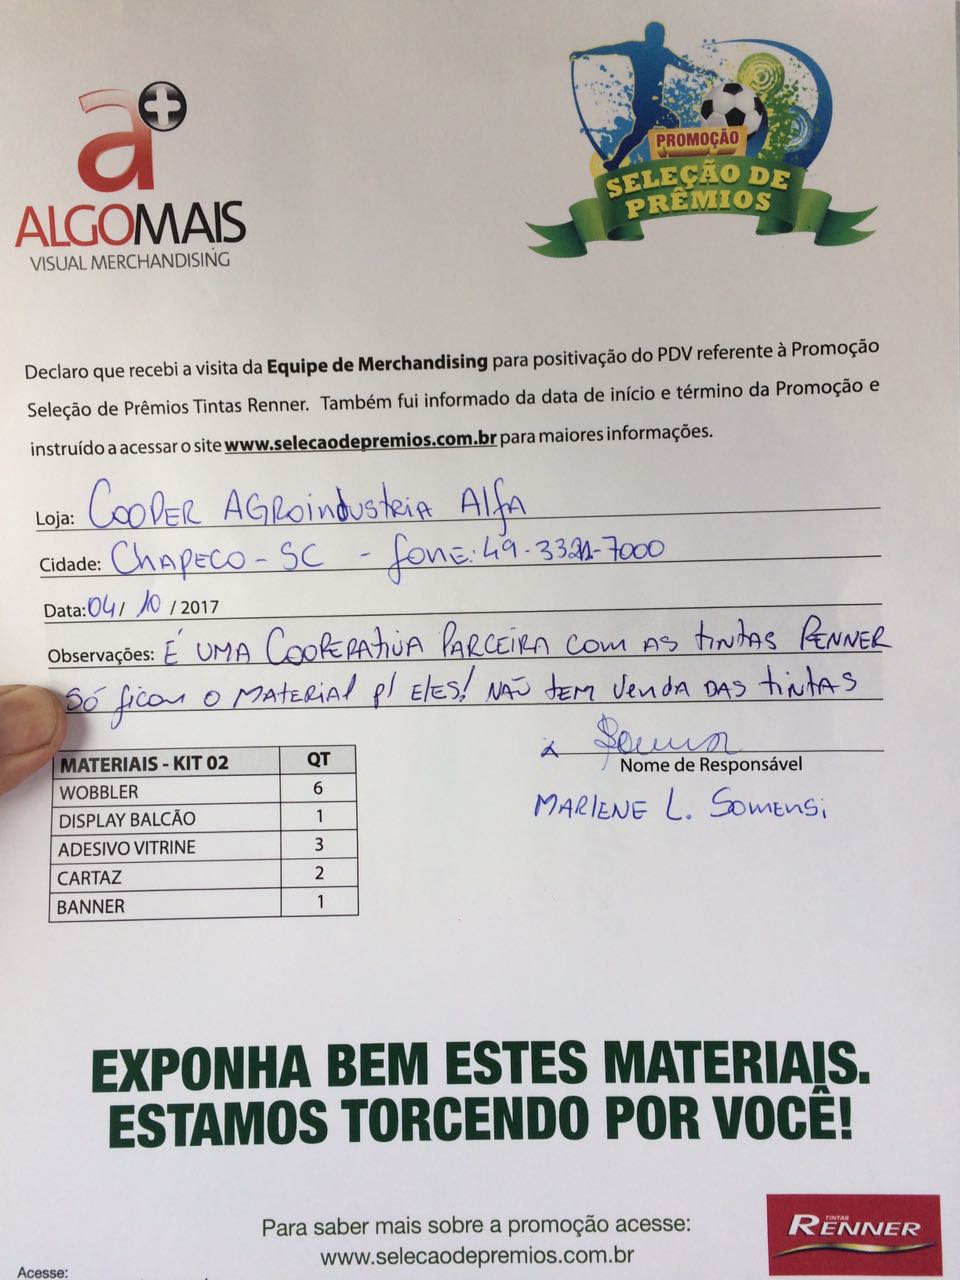 a+
ALGOMAIS
VISUAL MERCHANDISING
PROMOÇÃO
SELEÇÃO DE
PRÊMIOS
Declaro que recebi a visita da Equipe de Merchandising para positivação do PDV referente à Promoção
Seleção de Prêmios Tintas Renner. Também fui informado da data de início e término da Promoção e
instruído a acessar o site www.selecaodepremios.com.br para maiores informações.
Loja: COOPER AGROindustRiA AlfA
Cidade: CHAPECO - SC - fone: 49-3321-7000
Data: 04/ 10 / 2017
Observações: É UMA COOPERATIVA PARCEIRA COM AS TINTAS RENNER
SÓ ficam O MATERIAL p/ ELES! NÃO TEM VENDA DAS TINTAS
x
Nome de Responsável
MARLENE L. SOMENSI
MATERIAIS - KIT 02 QT
WOBBLER 6
DISPLAY BALCÃO 1
ADESIVO VITRINE 3
CARTAZ 2
BANNER 1
EXPONHA BEM ESTES MATERIAIS.
ESTAMOS TORCENDO POR VOCÊ!
Para saber mais sobre a promoção acesse:
www.selecaodepremios.com.br
TINTAS
RENNER
Acesse: